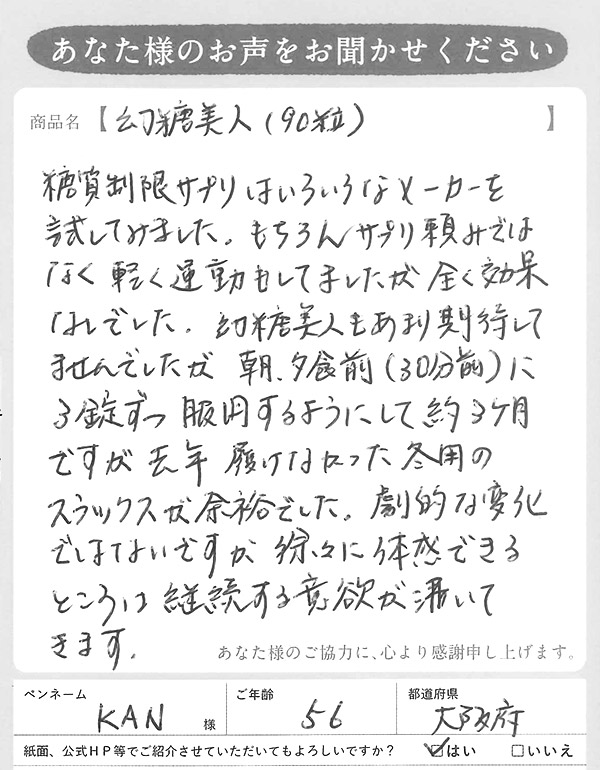 あなた様のお声をお聞かせください
商品名【幻糖美人（90粒）】
糖質制限サプリはいろいろなメーカーを
試してみました。もちろんサプリ頼みでは
なく軽く運動もしてましたが全く効果
なしでした。幻糖美人もあまり期待して
ませんでしたが 朝、夕食前（30分前）に
3錠ずつ 服用するようにして約3ケ月
ですが去年 履けなかった冬用の
スラックスが余裕でした。劇的な変化
ではないですが 徐々に体感できる
ところは継続する意欲が沸いて
きます。
あなた様のご協力に、心より感謝申し上げます。
ペンネーム KAN 様 ご年齢 56 都道府県 大阪府
紙面、公式HP等でご紹介させていただいてもよろしいですか？ ☑はい □いいえ